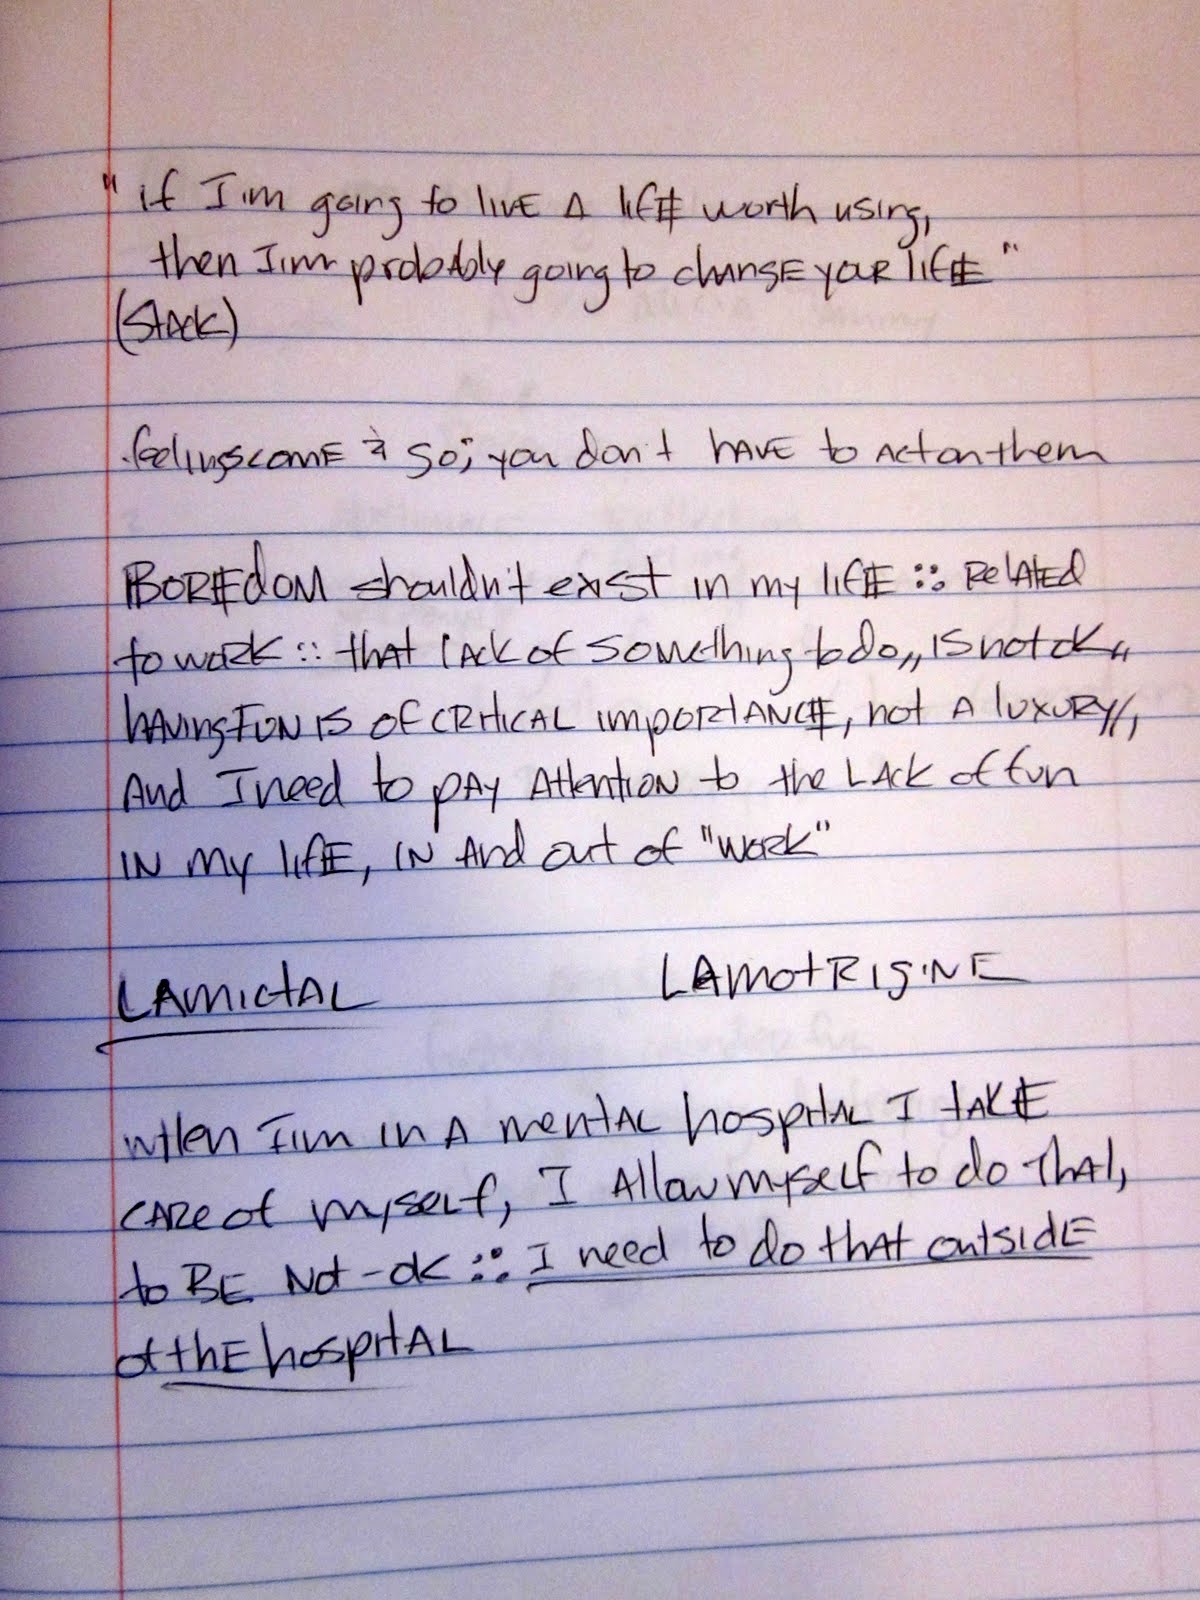 "if I'm going to live A life worth using,
then I'm probAbly going to chANgE your life"
(StAck)
feelings comE & go; you don't HAVE to Act on them
BOREdOM shouldn't exist in my lifE :: RelATEd
to woRK :: thAt lAck of something to do,, IS not ok,,
hAVing FUN IS OF CRitiCAL impORtANCE, not A luxuRy,,
And I need to pAy AttentiON to the LAck of fun
IN my lifE, IN And out of "woRK"
LAmictAL LAmotRigiNE
wHen I'm IN A mentAL hospitAL I tAKE
CARE of myself, I Allow myself to do ThAt,
to BE Not-ok :: I need to do thAt outsidE
of thE hospitAL